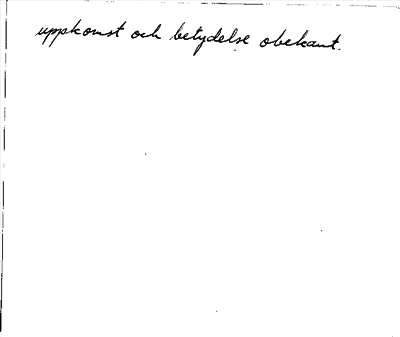 uppkomst och betydelse obekant.